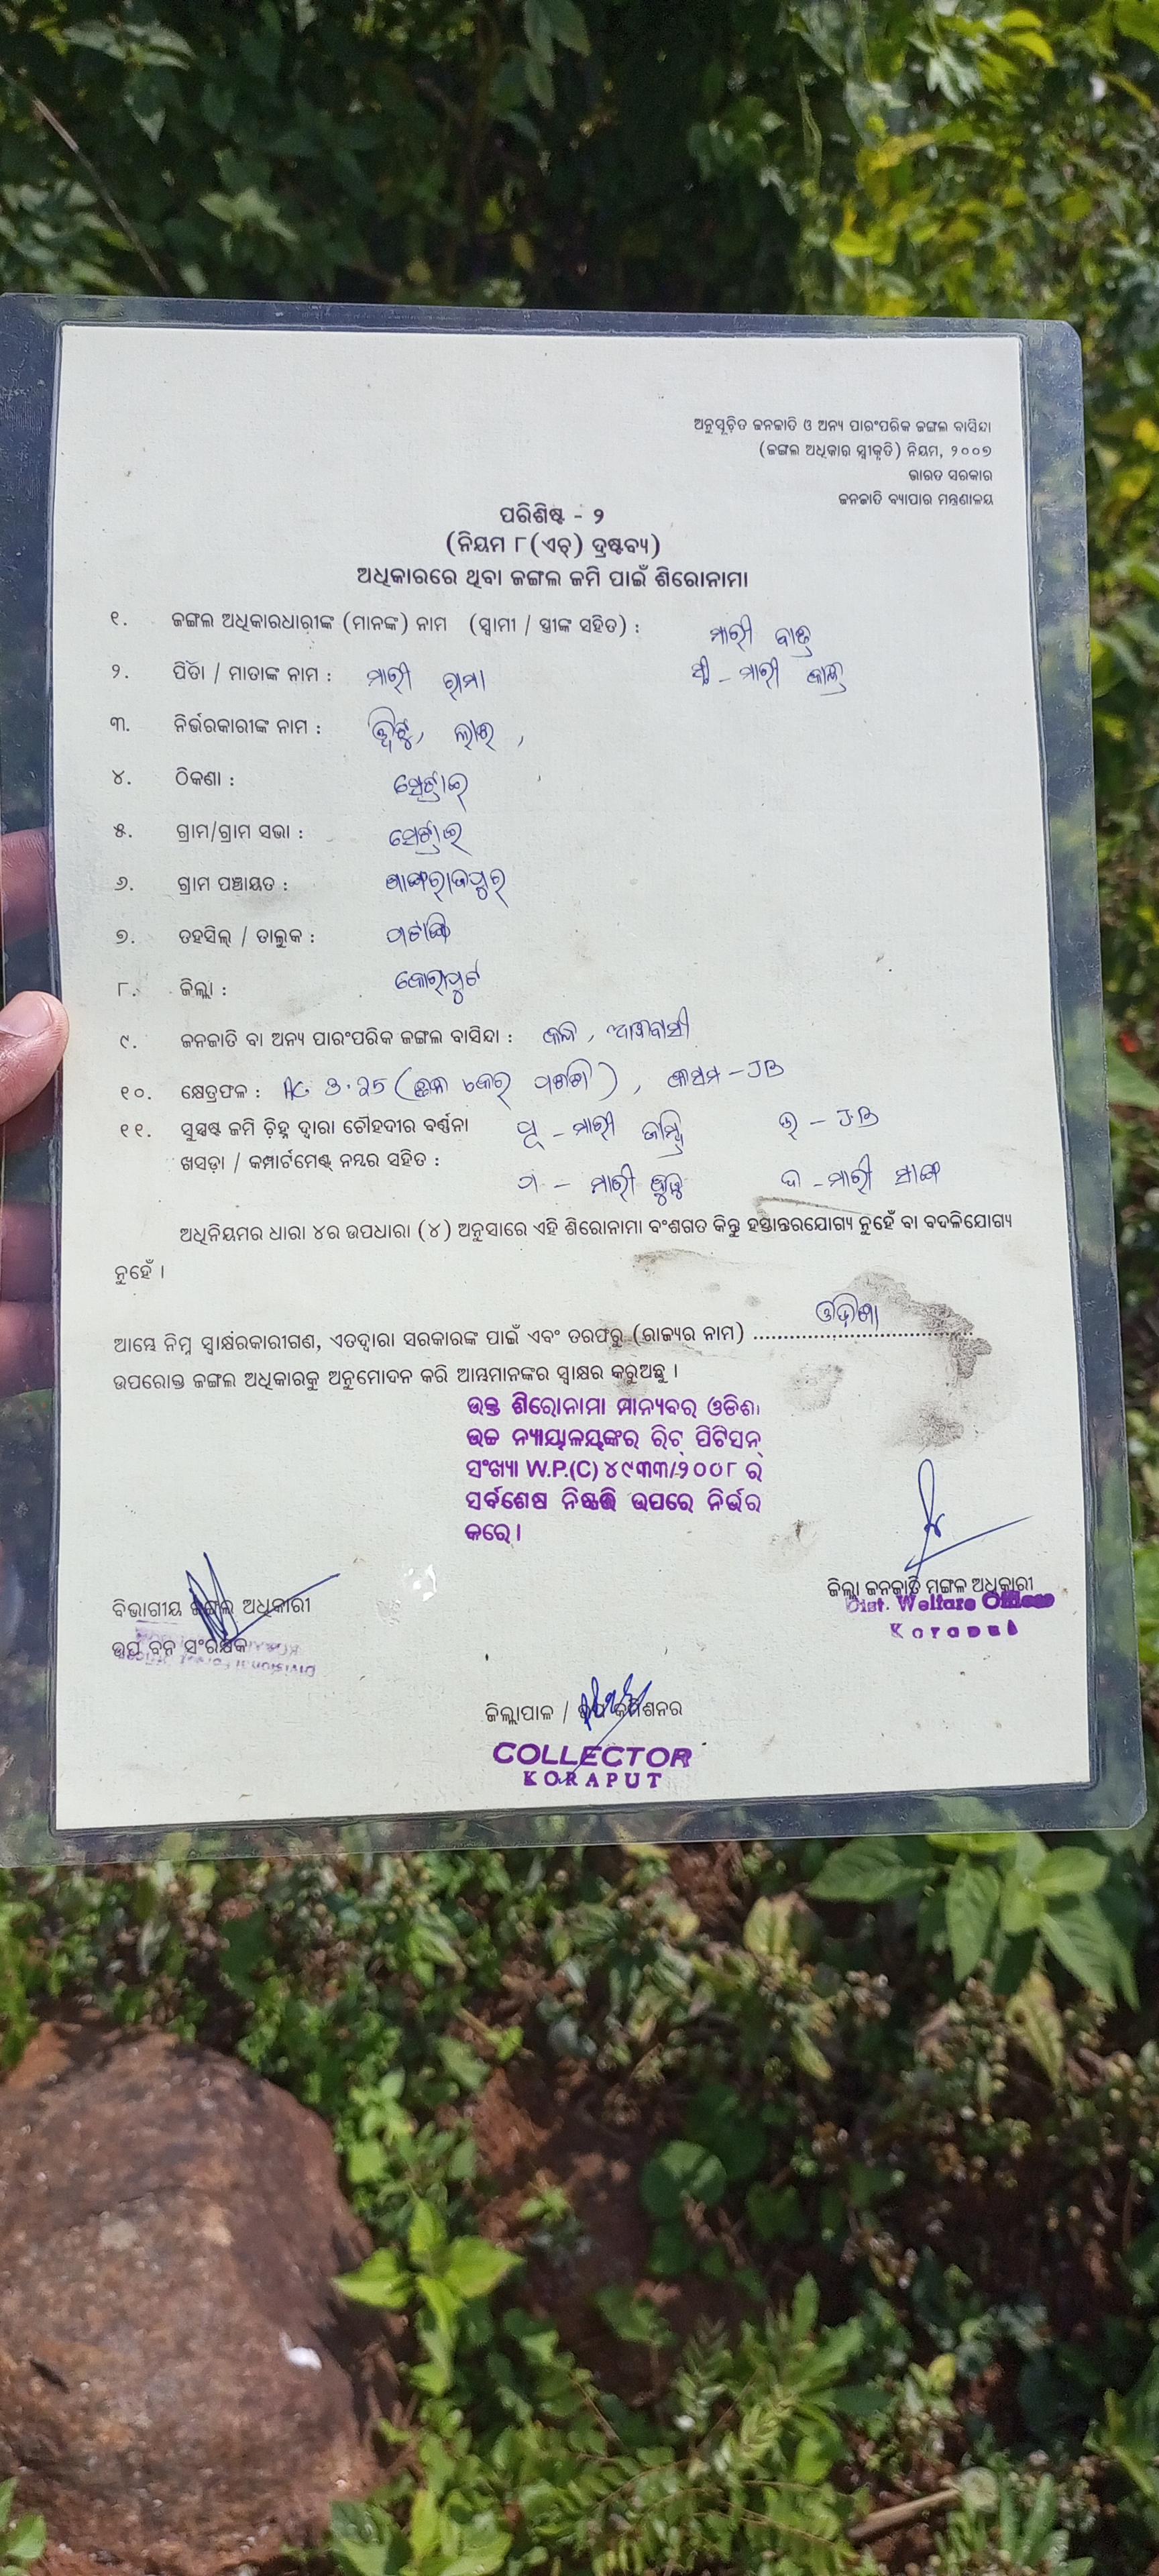 ଅନୁସୂଚିତ ଜନଜାତି ଓ ଅନ୍ୟ ପାରଂପରିକ ଜଙ୍ଗଲ ବାସିନ୍ଦା
(ଜଙ୍ଗଲ ଅଧିକାର ସ୍ୱୀକୃତି) ନିୟମ, ୨୦୦୭
ଭାରତ ସରକାର
ଜନଜାତି ବ୍ୟାପାର ମନ୍ତ୍ରଣାଳୟ
ପରିଶିଷ୍ଟ - ୨
(ନିୟମ ୮(ଏଚ୍) ଦ୍ରଷ୍ଟବ୍ୟ)
ଅଧିକାରରେ ଥିବା ଜଙ୍ଗଲ ଜମି ପାଇଁ ଶିରୋନାମା
୧. ଜଙ୍ଗଲ ଅଧିକାରଧାରୀଙ୍କ (ମାନଙ୍କ) ନାମ (ସ୍ୱାମୀ / ସ୍ତ୍ରୀଙ୍କ ସହିତ) : ମାରୀ
୨. ପିତା / ମାତାଙ୍କ ନାମ : ମାରୀ ରାମା ସ୍ତ୍ରୀ - ମାରୀ
୩. ନିର୍ଭରକାରୀଙ୍କ ନାମ :
୪. ଠିକଣା :
୫. ଗ୍ରାମ/ଗ୍ରାମ ସଭା :
୬. ଗ୍ରାମ ପଞ୍ଚାୟତ :
୭. ତହସିଲ୍ / ତାଲୁକ : ପଟାଙ୍ଗି
୮. ଜିଲ୍ଲା : କୋରାପୁଟ
୯. ଜନଜାତି ବା ଅନ୍ୟ ପାରଂପରିକ ଜଙ୍ଗଲ ବାସିନ୍ଦା : , ଆଦିବାସୀ
୧୦. କ୍ଷେତ୍ରଫଳ : AC , କିସମ - JB
୧୧. ସୁସ୍ପଷ୍ଟ ଜମି ଚିହ୍ନ ଦ୍ୱାରା ଚୌହଦୀର ବର୍ଣ୍ଣନା ପୂ - ମାରୀ ଉ - J.B
ଖସଡ଼ା / କମ୍ପାର୍ଟମେଣ୍ଟ୍ ନମ୍ବର ସହିତ : ପ - ମାରୀ ଦ - ମାରୀ
ଅଧିନିୟମର ଧାରା ୪ର ଉପଧାରା (୪) ଅନୁସାରେ ଏହି ଶିରୋନାମା ବଂଶଗତ କିନ୍ତୁ ହସ୍ତାନ୍ତରଯୋଗ୍ୟ ନୁହେଁ ବା ବଦଳିଯୋଗ୍ୟ
ନୁହେଁ ।
ଆମ୍ଭେ ନିମ୍ନ ସ୍ୱାକ୍ଷରକାରୀଗଣ, ଏତଦ୍ୱାରା ସରକାରଙ୍କ ପାଇଁ ଏବଂ ତରଫରୁ (ରାଜ୍ୟର ନାମ) ଓଡ଼ିଶା
ଉପରୋକ୍ତ ଜଙ୍ଗଲ ଅଧିକାରକୁ ଅନୁମୋଦନ କରି ଆମ୍ଭମାନଙ୍କର ସ୍ୱାକ୍ଷର କରୁଅଛୁ ।
ଉକ୍ତ ଶିରୋନାମା ମାନ୍ୟବର ଓଡିଶା
ଉଚ୍ଚ ନ୍ୟାୟାଳୟଙ୍କର ରିଟ୍ ପିଟିସନ୍
ସଂଖ୍ୟା W.P.(C) ୪୯୩୩/୨୦୦୮ ର୍
ସର୍ବଶେଷ ନିଷ୍ପତ୍ତି ଉପରେ ନିର୍ଭର
କରେ ।
ଜିଲ୍ଲା ଜନଜାତି ମଙ୍ଗଳ ଅଧିକାରୀ
Dist. Welfare Officer
Koraput
ବିଭାଗୀୟ ଜଙ୍ଗଲ ଅଧିକାରୀ
ଉପ ବନ ସଂରକ୍ଷକ
ଜିଲ୍ଲାପାଳ / ଉପ କମିଶନର
COLLECTOR
KORAPUT